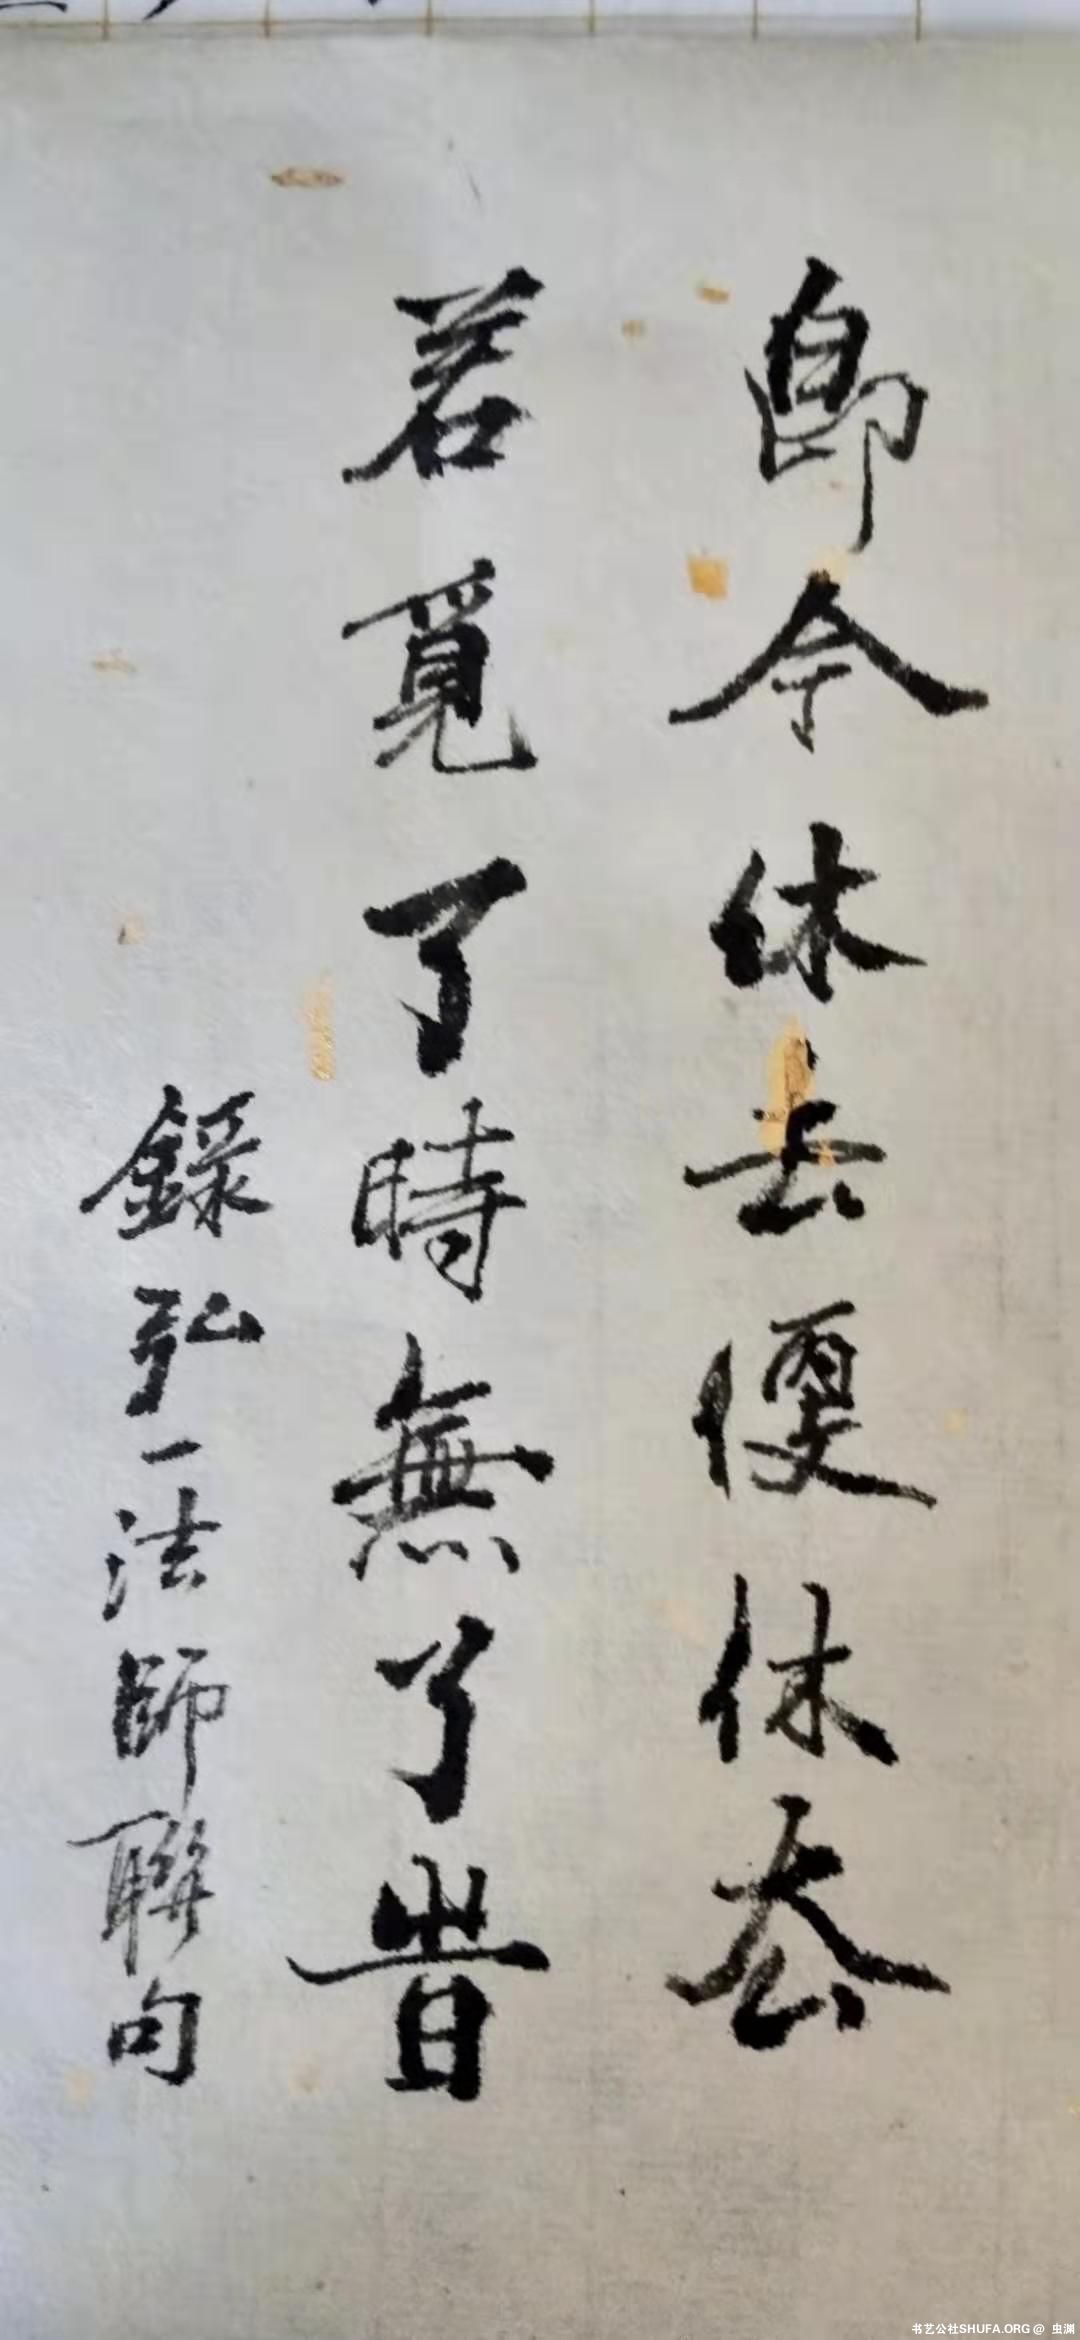 即今休去便休去
若覓了時無了旹
錄弘一法師聯句
书艺公社SHUFA.ORG @ 虫渊